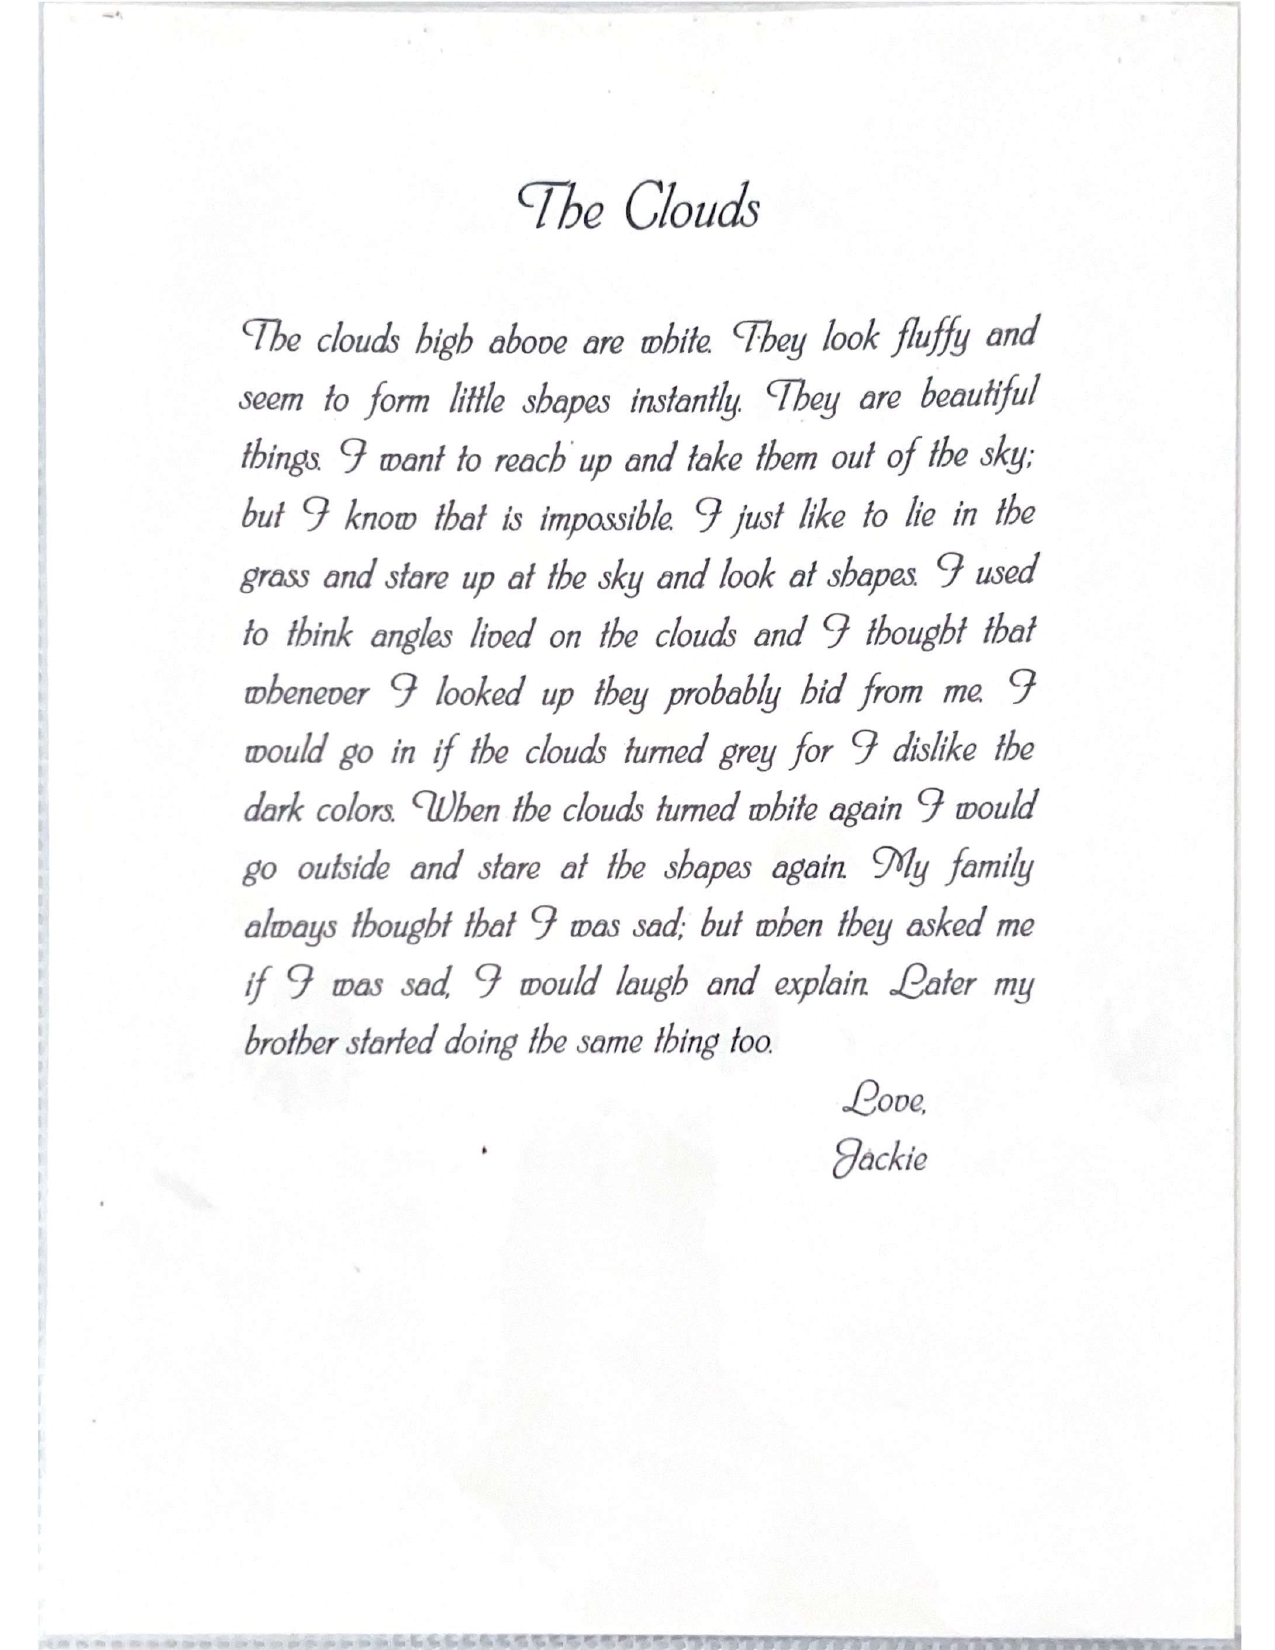 The Clouds
The clouds high above are white. They look fluffy and
seem to form little shapes instantly. They are beautiful
things. I want to reach up and take them out of the sky;
but I know that is impossible. I just like to lie in the
grass and stare up at the sky and look at shapes. I used
to think angles lived on the clouds and I thought that
whenever I looked up they probably hid from me. I
would go in if the clouds turned grey for I dislike the
dark colors. When the clouds turned white again I would
go outside and stare at the shapes again. My family
always thought that I was sad; but when they asked me
if I was sad, I would laugh and explain. Later my
brother started doing the same thing too.
Love,
Jackie